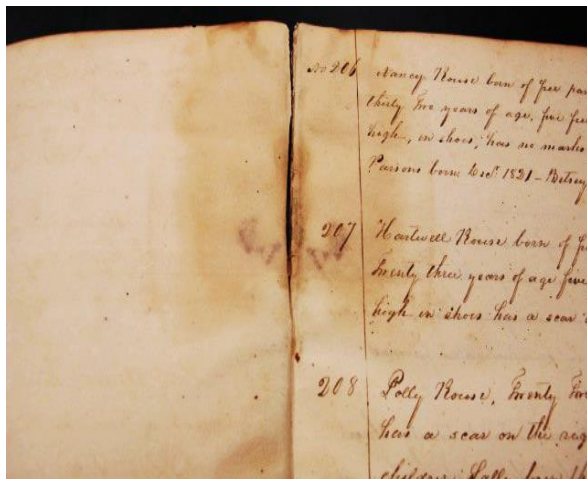 No 206 Nancy Rouse born of free par
thirty five years of age, five fee
high, in shoes, has no marks
Parsons born Decr 1821 - Betsey
207 Hartwell Rouse born of f
Twenty three years of age five
high in shoes has a scar
208 Polly Rouse, Twenty
has a scar on the rig
children Sally